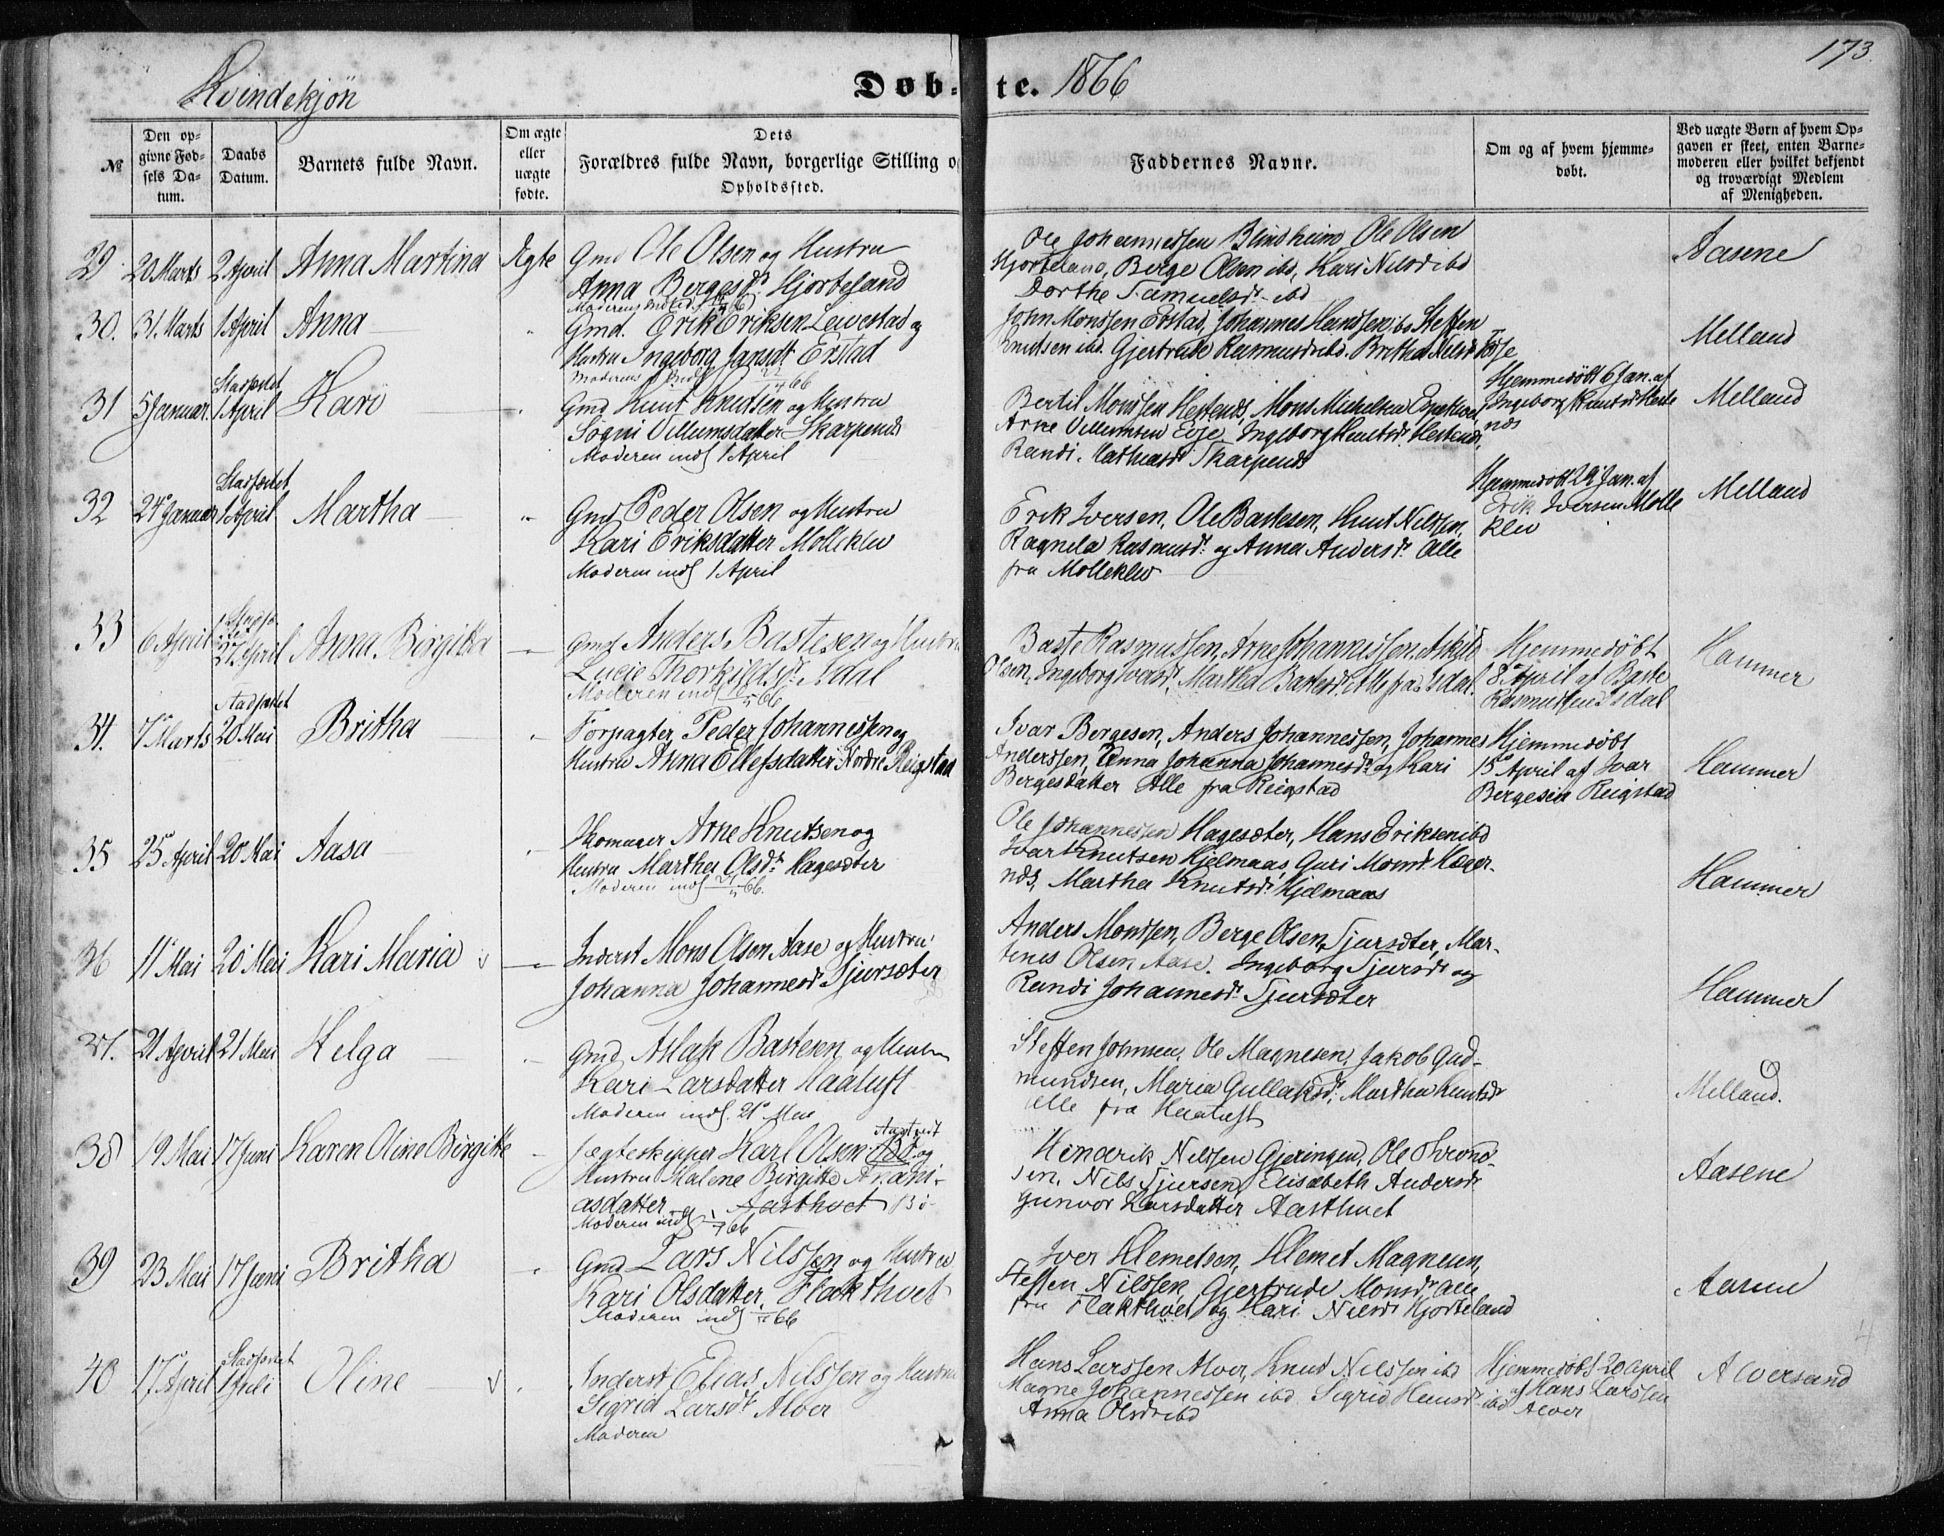 173.
Kvindekjøn
Døbte. 1866
№
Den opgivne Fødsels Datum.
Daabs Datum.
Barnets fulde Navn.
Om ægte eller uægte fødte.
Dets Forældres fulde Navn, borgerlige Stilling o
Opholdssted.
Faddernes Navne.
Om og af hvem hjemmedøbt.
Ved uægte Børn af hvem Opgaven er skeet, enten Barnemoderen eller hvilket bekjendt og troværdigt Medlem af Menigheden.
29 20 Marts 2 April Anna Martina Ægte
Gmd Ole Olsen og Hustru
Anna Bergesdr. Hjorteland
Ole Johannessen Blindheim, Ole Olsen
Hjorteland, Berge Olsen ibd, Kari Nilsd ibd
Dorthe Samuelsdr ibd
Aasene
30. 31. Marts 1 April Anna
Gmd. Erik Eriksen Levestad og
Hustru Ingeborg Jansdr Erstad
John Monssen Erstad, Johannes Hanssen ibd Steffen
Knutsen ibd. Gjertrude Rasmusdr ibd. Britha Nilsdr
Melland
31 5 Januar. Stadfæstet 1 April Kari
Gmd Knut Knutsen og Hustru
Sogni Villumsdatter Skarpenes
Moderen indl 1 April
Bertil Monssen Hestenes, Mons Michelsen
Arne Villumsen Eoje, Ingeborg Knutsdr. Hestenes,
Randi Mathiasdr Skarpenes
Hjemmedøbt 6 Jan. af
Ingeborg Knutsdr Heste
nes
Melland
32 24 Januar Stadfæstet 1 April Martha
Gmd Peder Olsen og Hustru
Kari Eriksdatter Molleklev
Moderen indl 1 April
Erik Iversen, Ole Bastesen, Knut Nilssen,
Ragnela Rasmusdr. og Anna Andersdr. Alle
fra Molleklev
Hjemmedøbt 29 Jan. af
Erik Iversen Molle
klev
Melland
33 6 April 27. April Anna Birgitta
Gmd Anders Bastesen og Hustru
Lucie Thorkildsdr. Isdal
Moderen indl 6/5 66
Baste Rasmussen, Arne Johannessen, Askild
Olsen, Ingeborg Ivarsdr, Martha Bastesdr Alle fra Isdal.
Hjemmedøbt
8 April af Baste
Rasmussen Isdal
Hammer
34. 7 Marts Stadfæstet 20 Mai Britha
Forpagter Peder Johannessen og
Hustru Anna Ellefsdatter Nordre Reigstad
Ivar Bergesen, Anders Johannessen, Johannes
Anderssen, Anna Johanna Johannesdr. og Kari
Bergesdatter Alle fra Reigstad
Hjemmedøbt
15 April af Ivar
Bergesen Reigstad
Hammer
35 25 April 20 Mai Aasa
Skomager Arne Knutsen og
Hustru Martha Olsdr. Hagesæter
Moderen indl 66.
Ole Johannessen Hagesæter, Hans Eriksen ibd
Ivar Knutsen Hjelmaas, Guri Monsdr Hæger-
nes, Martha Knutsdr. Hjelmaas
Hammer
36 11 Mai 20 Mai Kari Maria v
Inderst Mons Olsen Aase og Hustru
Johanna Johannesdr Tjursæter
Anders Monssen, Berge Olsen, Tjursæter, Mar-
tenes Olsen Aase. Ingeborg Tjursdr og
Randi Johannesdr. Tjursæter
Hammer
37. 21 April 21 Mai Helga
Gmd. Aslak Bastesen og Hustru
Kari Larsdatter Haatuft
Moderen indl. 21 Mai
Steffen Johnsen, Ole Magnesen, Jakob Gud-
mundsen, Maria Gullaksdr. Martha Knutsdr
alle fra Haatuft
Melland.
38 19 Mai 17 Juni Karen Oline Birgitte
Jægteskipper Karl Olsen Bø og
Hustru Malene Birgitte Anani-
asdatter Aasthvet Bø
Moderen indl 66
Henderik Nilssen Gjeringen, Ole Thrond-
sen. Nils Tjursen, Elisabeth Andersdr
Gunvor Larsdatter Aasthvet
Aasene
39 23 Mai 17 Juni Britha
Gmd Lars Nilssen og Hustru
Kari Olsdatter Flakthvet
Moderen indl 66
Iver Klemetsen, Klemet Magnesen,
Steffen Nilssen, Gjertrude Monsdr alle
fra Flakthvet og Kari Nilsdr Hjorteland
Aasene
40 17. April Stadfæstet 1 Juli Oline v
Inderst Elias Nilssen og Hustru
Sigrid Larsdr. Alver
Moderen
Hans Larssen Alver, Knud Nilssen ibd
Magne Johannessen ibd Sigrid Hansdr. ibd
Anna Olsdr ibd
Hjemmedøbt 20 April
af Hans Larssen
Alver
Alversund